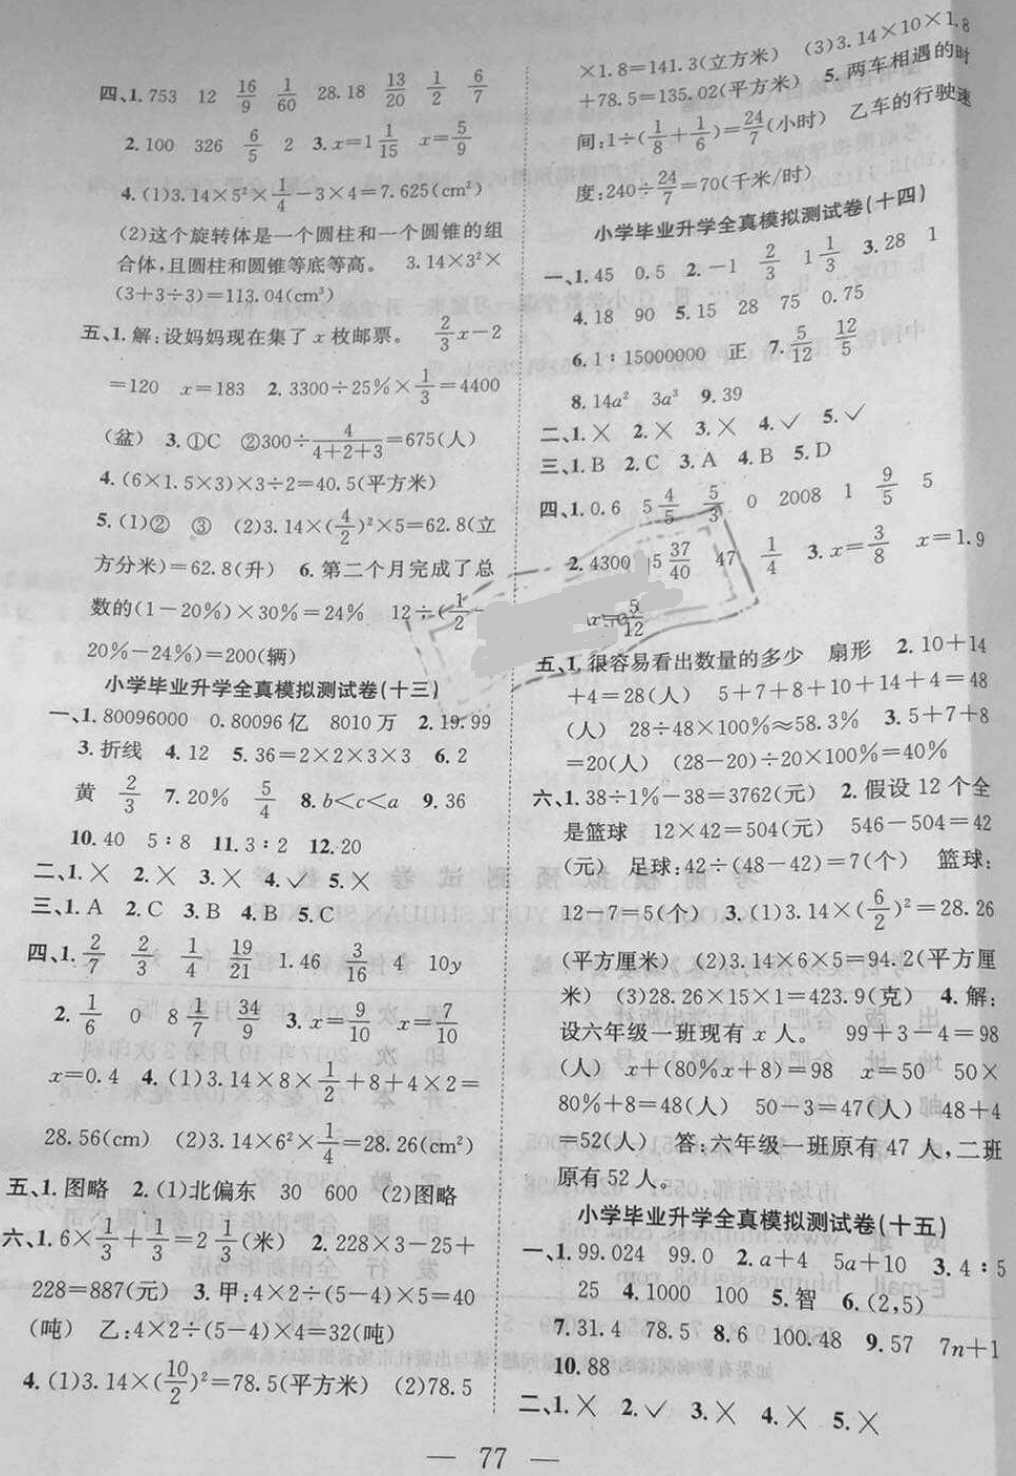 四、1. 753 12 16/9 1/60 28.18 13/20 1/2 6/7
2. 100 326 6/5 2 3. x=1 1/15 x=5/9
4. (1)3.14×5²×1/4-3×4=7.625(cm²)
(2)这个旋转体是一个圆柱和一个圆锥的组
合体,且圆柱和圆锥等底等高。 3.14×3²×
(3+3÷3)=113.04(cm³)
五、1. 解:设妈妈现在集了 x 枚邮票。 2/3x-2
=120 x=183 2. 3300÷25%×1/3=4400
(盆) 3. ①C ②300÷4/(4+2+3)=675(人)
4. (6×1.5×3)×3÷2=40.5(平方米)
5. (1)② ③ (2)3.14×(4/2)²×5=62.8(立
方分米)=62.8(升) 6. 第二个月完成了总
数的(1-20%)×30%=24% 12÷(1/2-
20%-24%)=200(辆)
小学毕业升学全真模拟测试卷(十三)
一、1. 80096000 0.80096亿 8010万 2. 19.99
3. 折线 4. 12 5. 36=2×2×3×3 6. 2
黄 2/3 7. 20% 5/4 8. b<c<a 9. 36
10. 40 5∶8 11. 3∶2 12. 20
二、1. × 2. × 3. × 4. ✓ 5. ×
三、1. A 2. C 3. B 4. B 5. C
四、1. 2/7 2/3 1/4 19/21 1.46 3/16 4 10y
2. 1/6 0 8 1/7 34/9 3. x=9/10 x=7/10
x=0.4 4. (1)3.14×8×1/2+8+4×2=
28.56(cm) (2)3.14×6²×1/4=28.26(cm²)
五、1. 图略 2. (1)北偏东 30 600 (2)图略
六、1. 6×1/3+1/3=2 1/3(米) 2. 228×3-25+
228=887(元) 3. 甲:4×2÷(5-4)×5=40
(吨) 乙:4×2÷(5-4)×4=32(吨)
4. (1)3.14×(10/2)²=78.5(平方米) (2)78.5
×1.8=141.3(立方米) (3)3.14×10×1.8
+78.5=135.02(平方米) 5. 两车相遇的时
间:1÷(1/8+1/6)=24/7(小时) 乙车的行驶速
度:240÷24/7=70(千米/时)
小学毕业升学全真模拟测试卷(十四)
一、1. 45 0.5 2. -1 2/3 1 1/3 3. 28 1
4. 18 90 5. 15 28 75 0.75
6. 1∶15000000 正 7. 5/12 12/5
8. 14a² 3a³ 9. 39
二、1. × 2. × 3. × 4. ✓ 5. ✓
三、1. B 2. C 3. A 4. B 5. D
四、1. 0.6 5 4/5 5/3 0 2008 1 9/5 5
2. 4300 5 37/40 47 1/4 3. x=3/8 x=1.9
x=5/12
五、1. 很容易看出数量的多少 扇形 2. 10+14
+4=28(人) 5+7+8+10+14+4=48
(人) 28÷48×100%≈58.3% 3. 5+7+8
=20(人) (28-20)÷20×100%=40%
六、1. 38÷1%-38=3762(元) 2. 假设12个全
是篮球 12×42=504(元) 546-504=42
(元) 足球:42÷(48-42)=7(个) 篮球:
12-7=5(个) 3. (1)3.14×(6/2)²=28.26
(平方厘米) (2)3.14×6×5=94.2(平方厘
米) (3)28.26×15×1=423.9(克) 4. 解:
设六年级一班现有 x 人。 99+3-4=98
(人) x+(80%x+8)=98 x=50 50×
80%+8=48(人) 50-3=47(人) 48+4
=52(人) 答:六年级一班原有47人,二班
原有52人。
小学毕业升学全真模拟测试卷(十五)
一、1. 99.024 99.0 2. a+4 5a+10 3. 4∶5
25 4. 1000 100 5. 智 6. (2,5)
7. 31.4 78.5 8. 6 100.48 9. 57 7n+1
10. 88
二、1. × 2. ✓ 3. × 4. × 5. ×
— 77 —